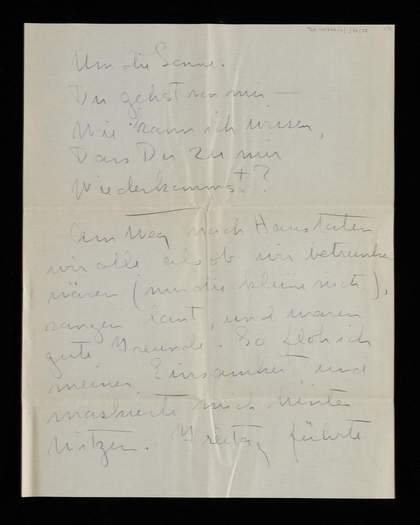 Um die Sonne.
Du gehst von mir —
Wie kann ich wissen,
Dass Du zu mir
Wiederkommst?
Am Weg nach Haus taten
wir alle als ob wir betrunken
wären (nur die kleine nicht),
sangen laut, und waren
gute Freunde. So floh ich
meiner Einsamkeit und
maskierte mich hinter
Witzen. Freitag führte